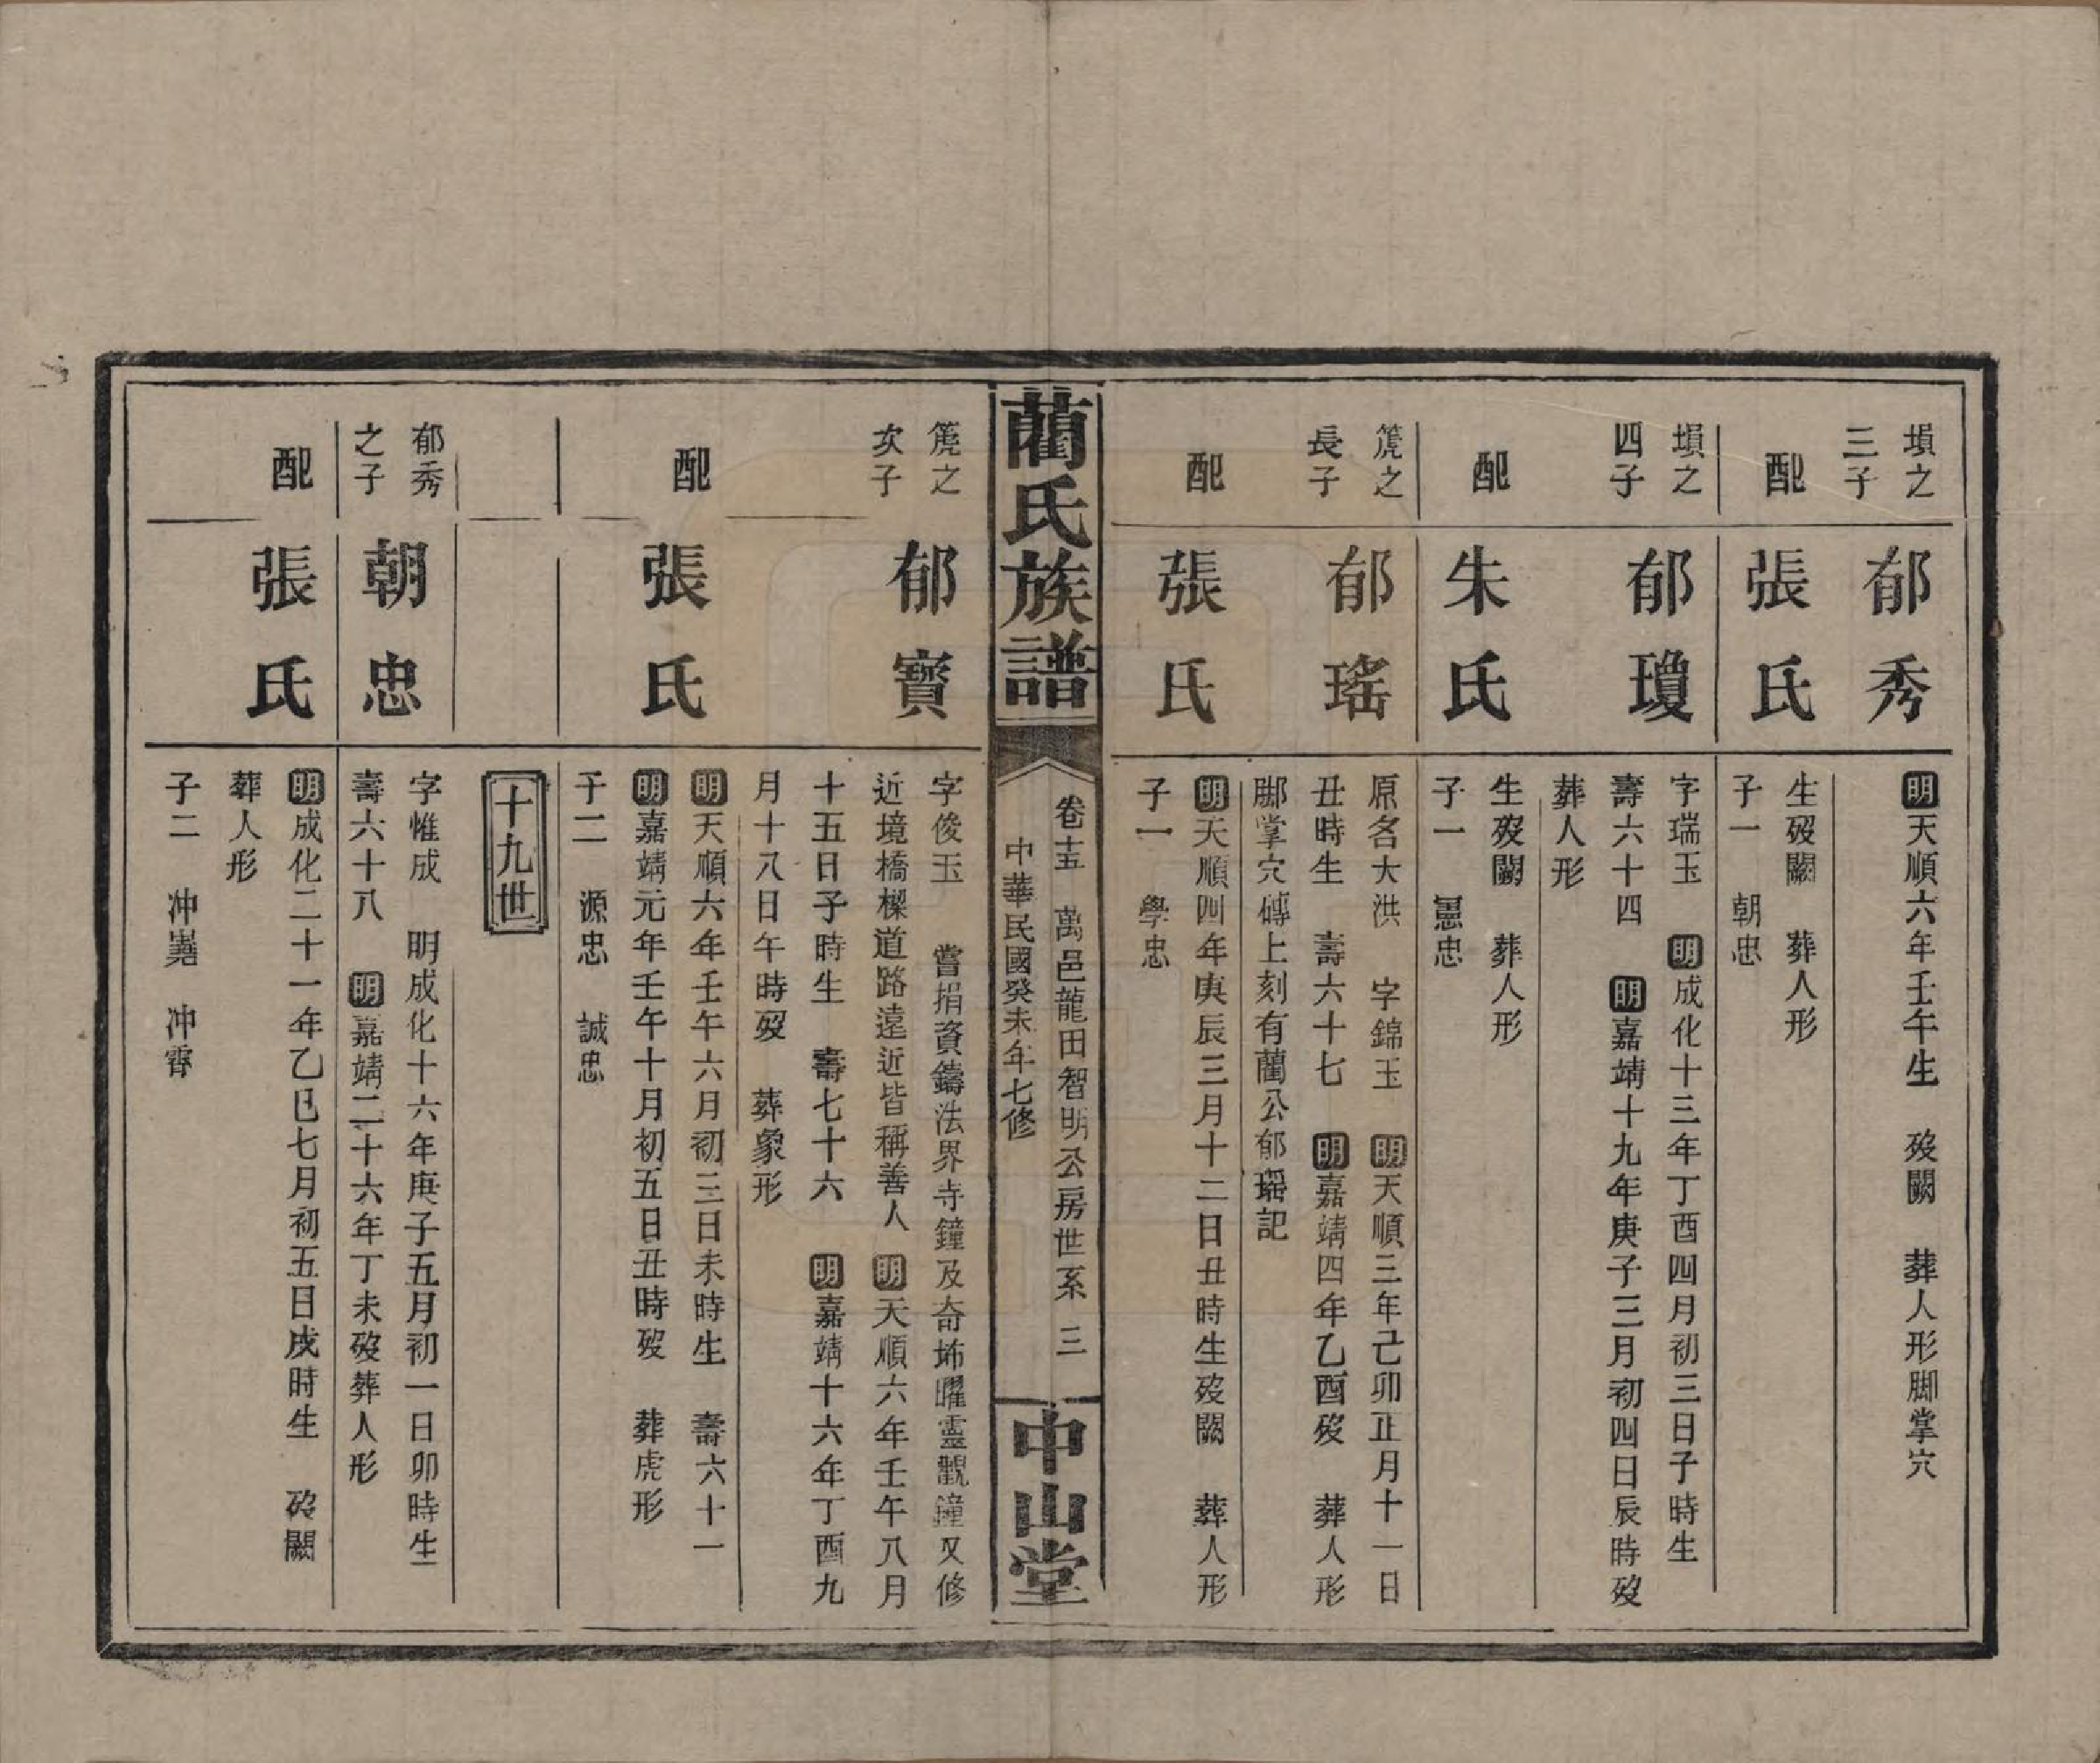 塤之
三子
郁秀
明天順六年壬午生　歿闕　葬人形脚掌穴
配
張氏
生歿闕　葬人形
子一　朝忠
塤之
四子
郁瓊
字瑞玉　明成化十三年丁酉四月初三日子時生
壽六十四　明嘉靖十九年庚子三月初四日辰時歿
葬人形
配
朱氏
生歿闕　葬人形
子一　憲忠
篪之
長子
郁瑤
原名大洪　字錦玉　明天順三年己卯正月十一日
丑時生　壽六十七　明嘉靖四年乙酉歿　葬人形
脚掌穴磚上刻有藺公郁瑤記
配
張氏
明天順四年庚辰三月十二日丑時生歿闕　葬人形
子一　學忠
藺氏族譜
卷十五　萬邑龍田智明公房世系　三
中華民國癸未年七修
中山堂
篪之
次子
郁寶
字俊玉　嘗捐資鑄法界寺鐘及奇坳曜靈觀鐘又修
近境橋樑道路遠近皆稱善人　明天順六年壬午八月
十五日子時生　壽七十六　明嘉靖十六年丁酉九
月十八日午時歿　葬象形
配
張氏
明天順六年壬午六月初三日未時生　壽六十一
明嘉靖元年壬午十月初五日丑時歿　葬虎形
子二　源忠　誠忠
十九世
郁秀
之子
朝忠
字惟成　明成化十六年庚子五月初一日卯時生
壽六十八　明嘉靖二十六年丁未歿葬人形
配
張氏
明成化二十一年乙巳七月初五日戌時生　歿闕
葬人形
子二　冲嵩　冲霄